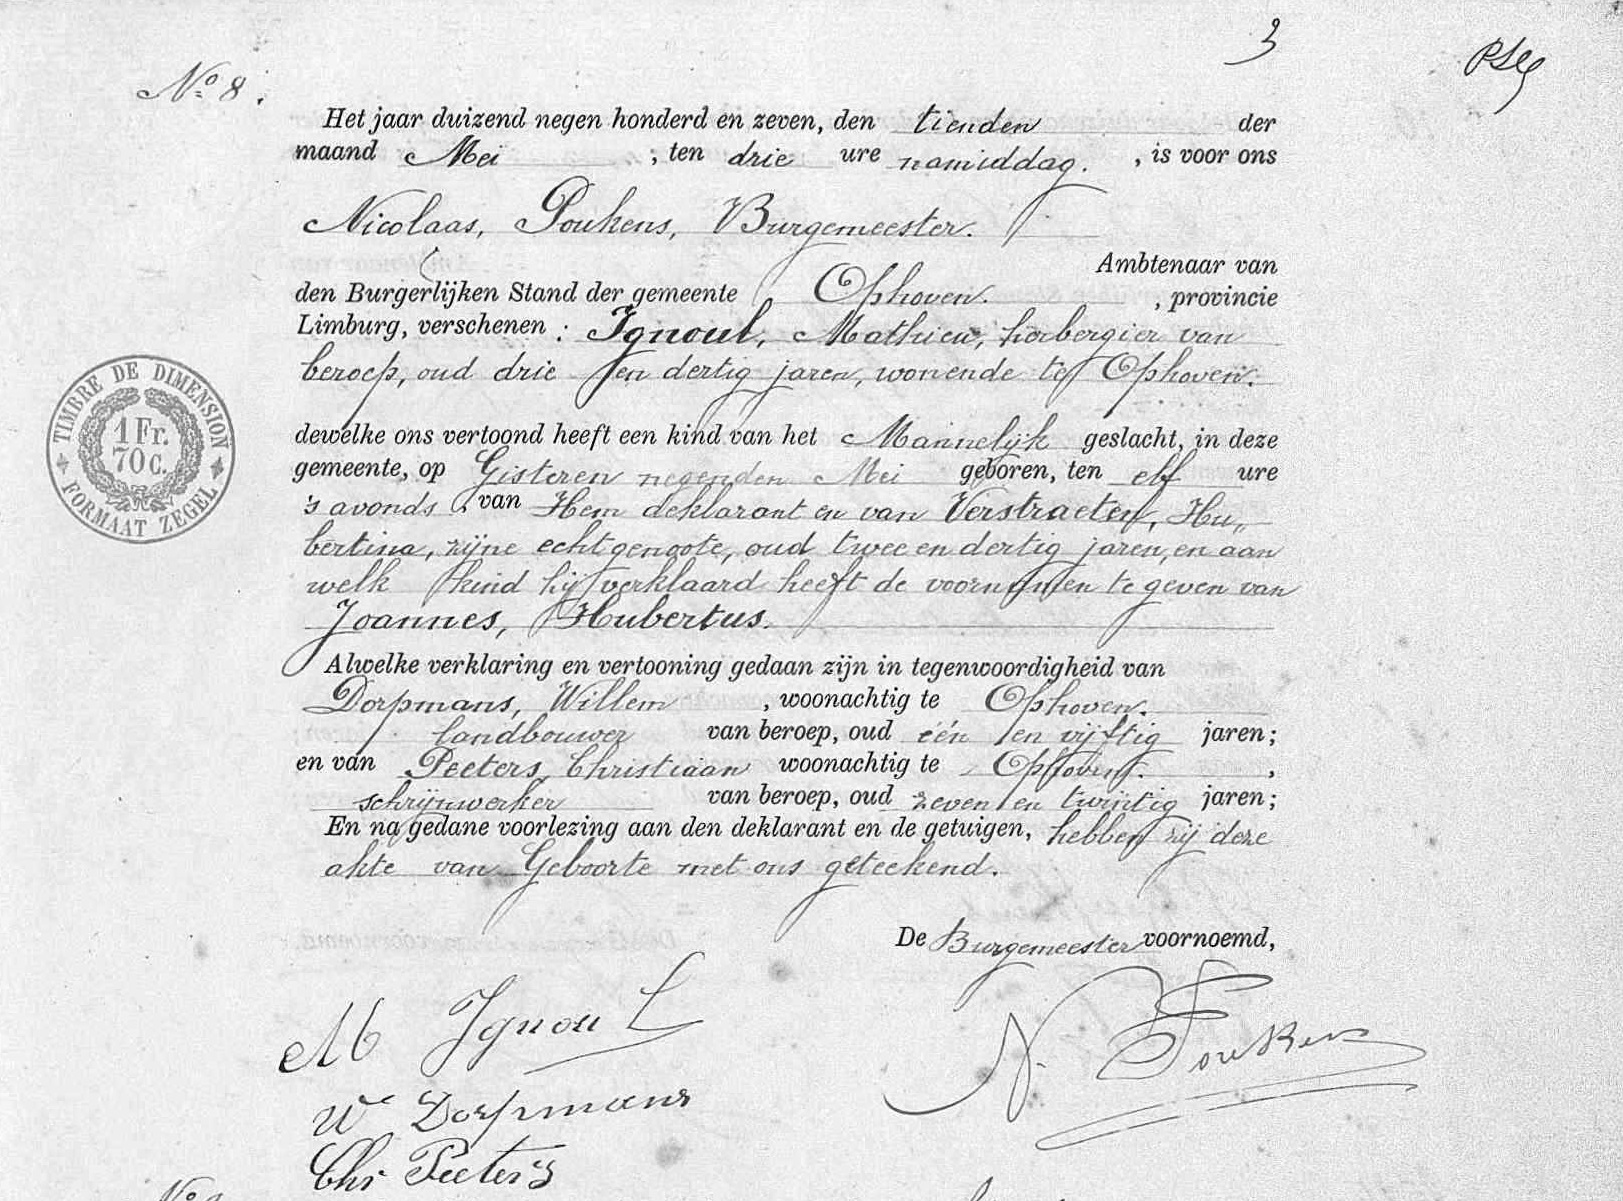 3
No 8.
Het jaar duizend negen honderd en zeven, den tienden der
maand Mei , ten drie ure namiddag. , is voor ons
Nicolaas, Poukens, Burgemeester.
Ambtenaar van
den Burgerlijken Stand der gemeente Ophoven. , provincie
Limburg, verschenen : Ignoul, Mathieu, herbergier van
beroep, oud drie en dertig jaren, wonende te Ophoven.
TIMBRE DE DIMENSION
1 Fr.
70 C.
FORMAAT ZEGEL
dewelke ons vertoond heeft een kind van het Mannelijk geslacht, in deze
gemeente, op Gisteren negenden Mei geboren, ten elf ure
's avonds, van Hem deklarant en van Verstraeten, Hu„
bertina, zijne echtgenoote, oud twee en dertig jaren, en aan
welk kind hij verklaard heeft de voornamen te geven van
Joannes, Hubertus.
Alwelke verklaring en vertooning gedaan zijn in tegenwoordigheid van
Dorpmans, Willem , woonachtig te Ophoven.
landbouwer van beroep, oud één en vijftig jaren;
en van Peeters, Christiaan woonachtig te Ophoven. ,
schrijnwerker van beroep, oud zeven en twintig jaren;
En na gedane voorlezing aan den deklarant en de getuigen, hebben zij deze
akte van Geboorte met ons geteekend.
De Burgemeester voornoemd,
M Ignoul
N. Poukens
W Dorpmans
Chr Peeters